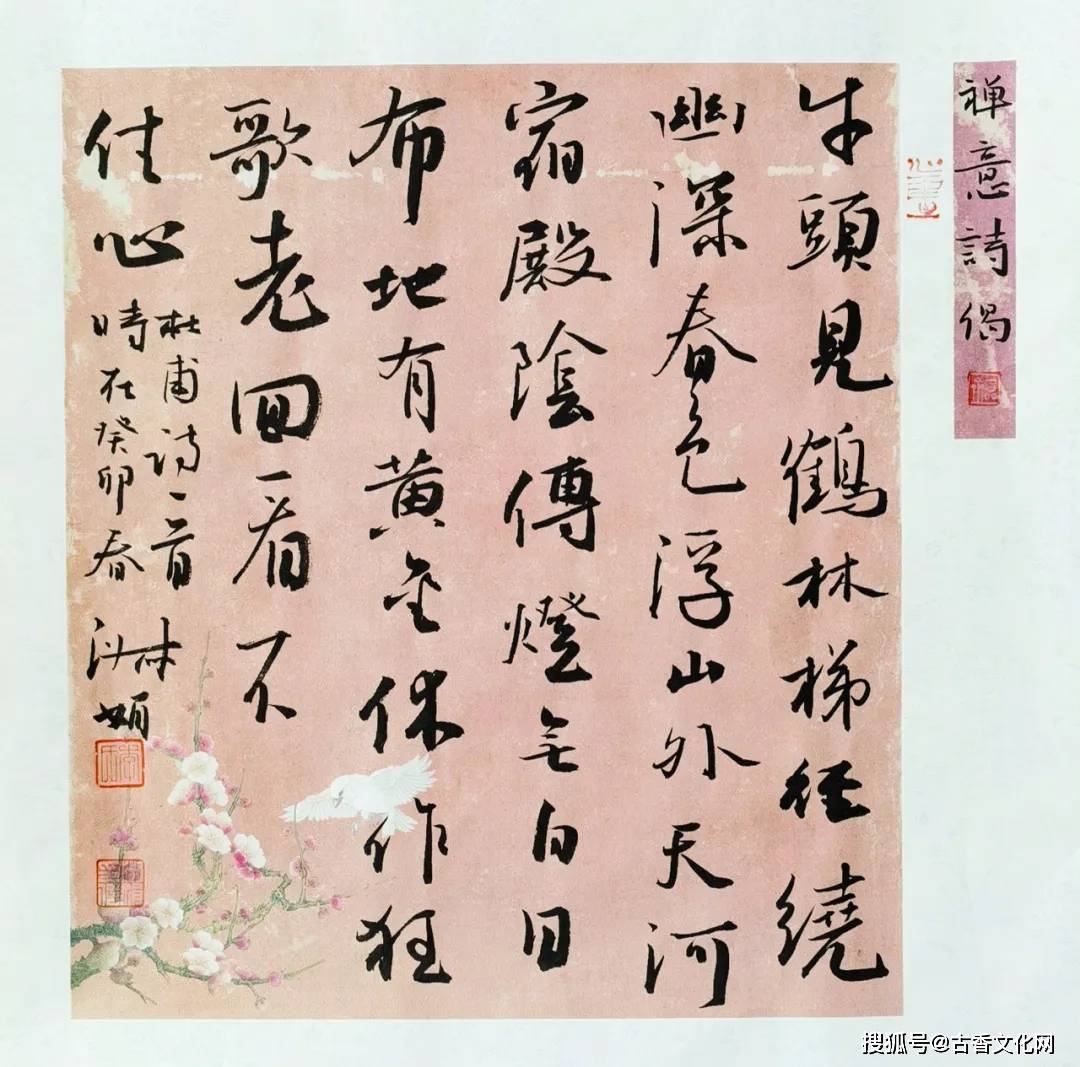 禅意詩偈
牛頭見鶴林梯徑繞
幽深春色浮山外天河
宿殿陰傳燈無白日
布地有黄金休作狂
歌老回看不
住心
杜甫诗一首
時在癸卯春
林
搜狐号@古香文化网